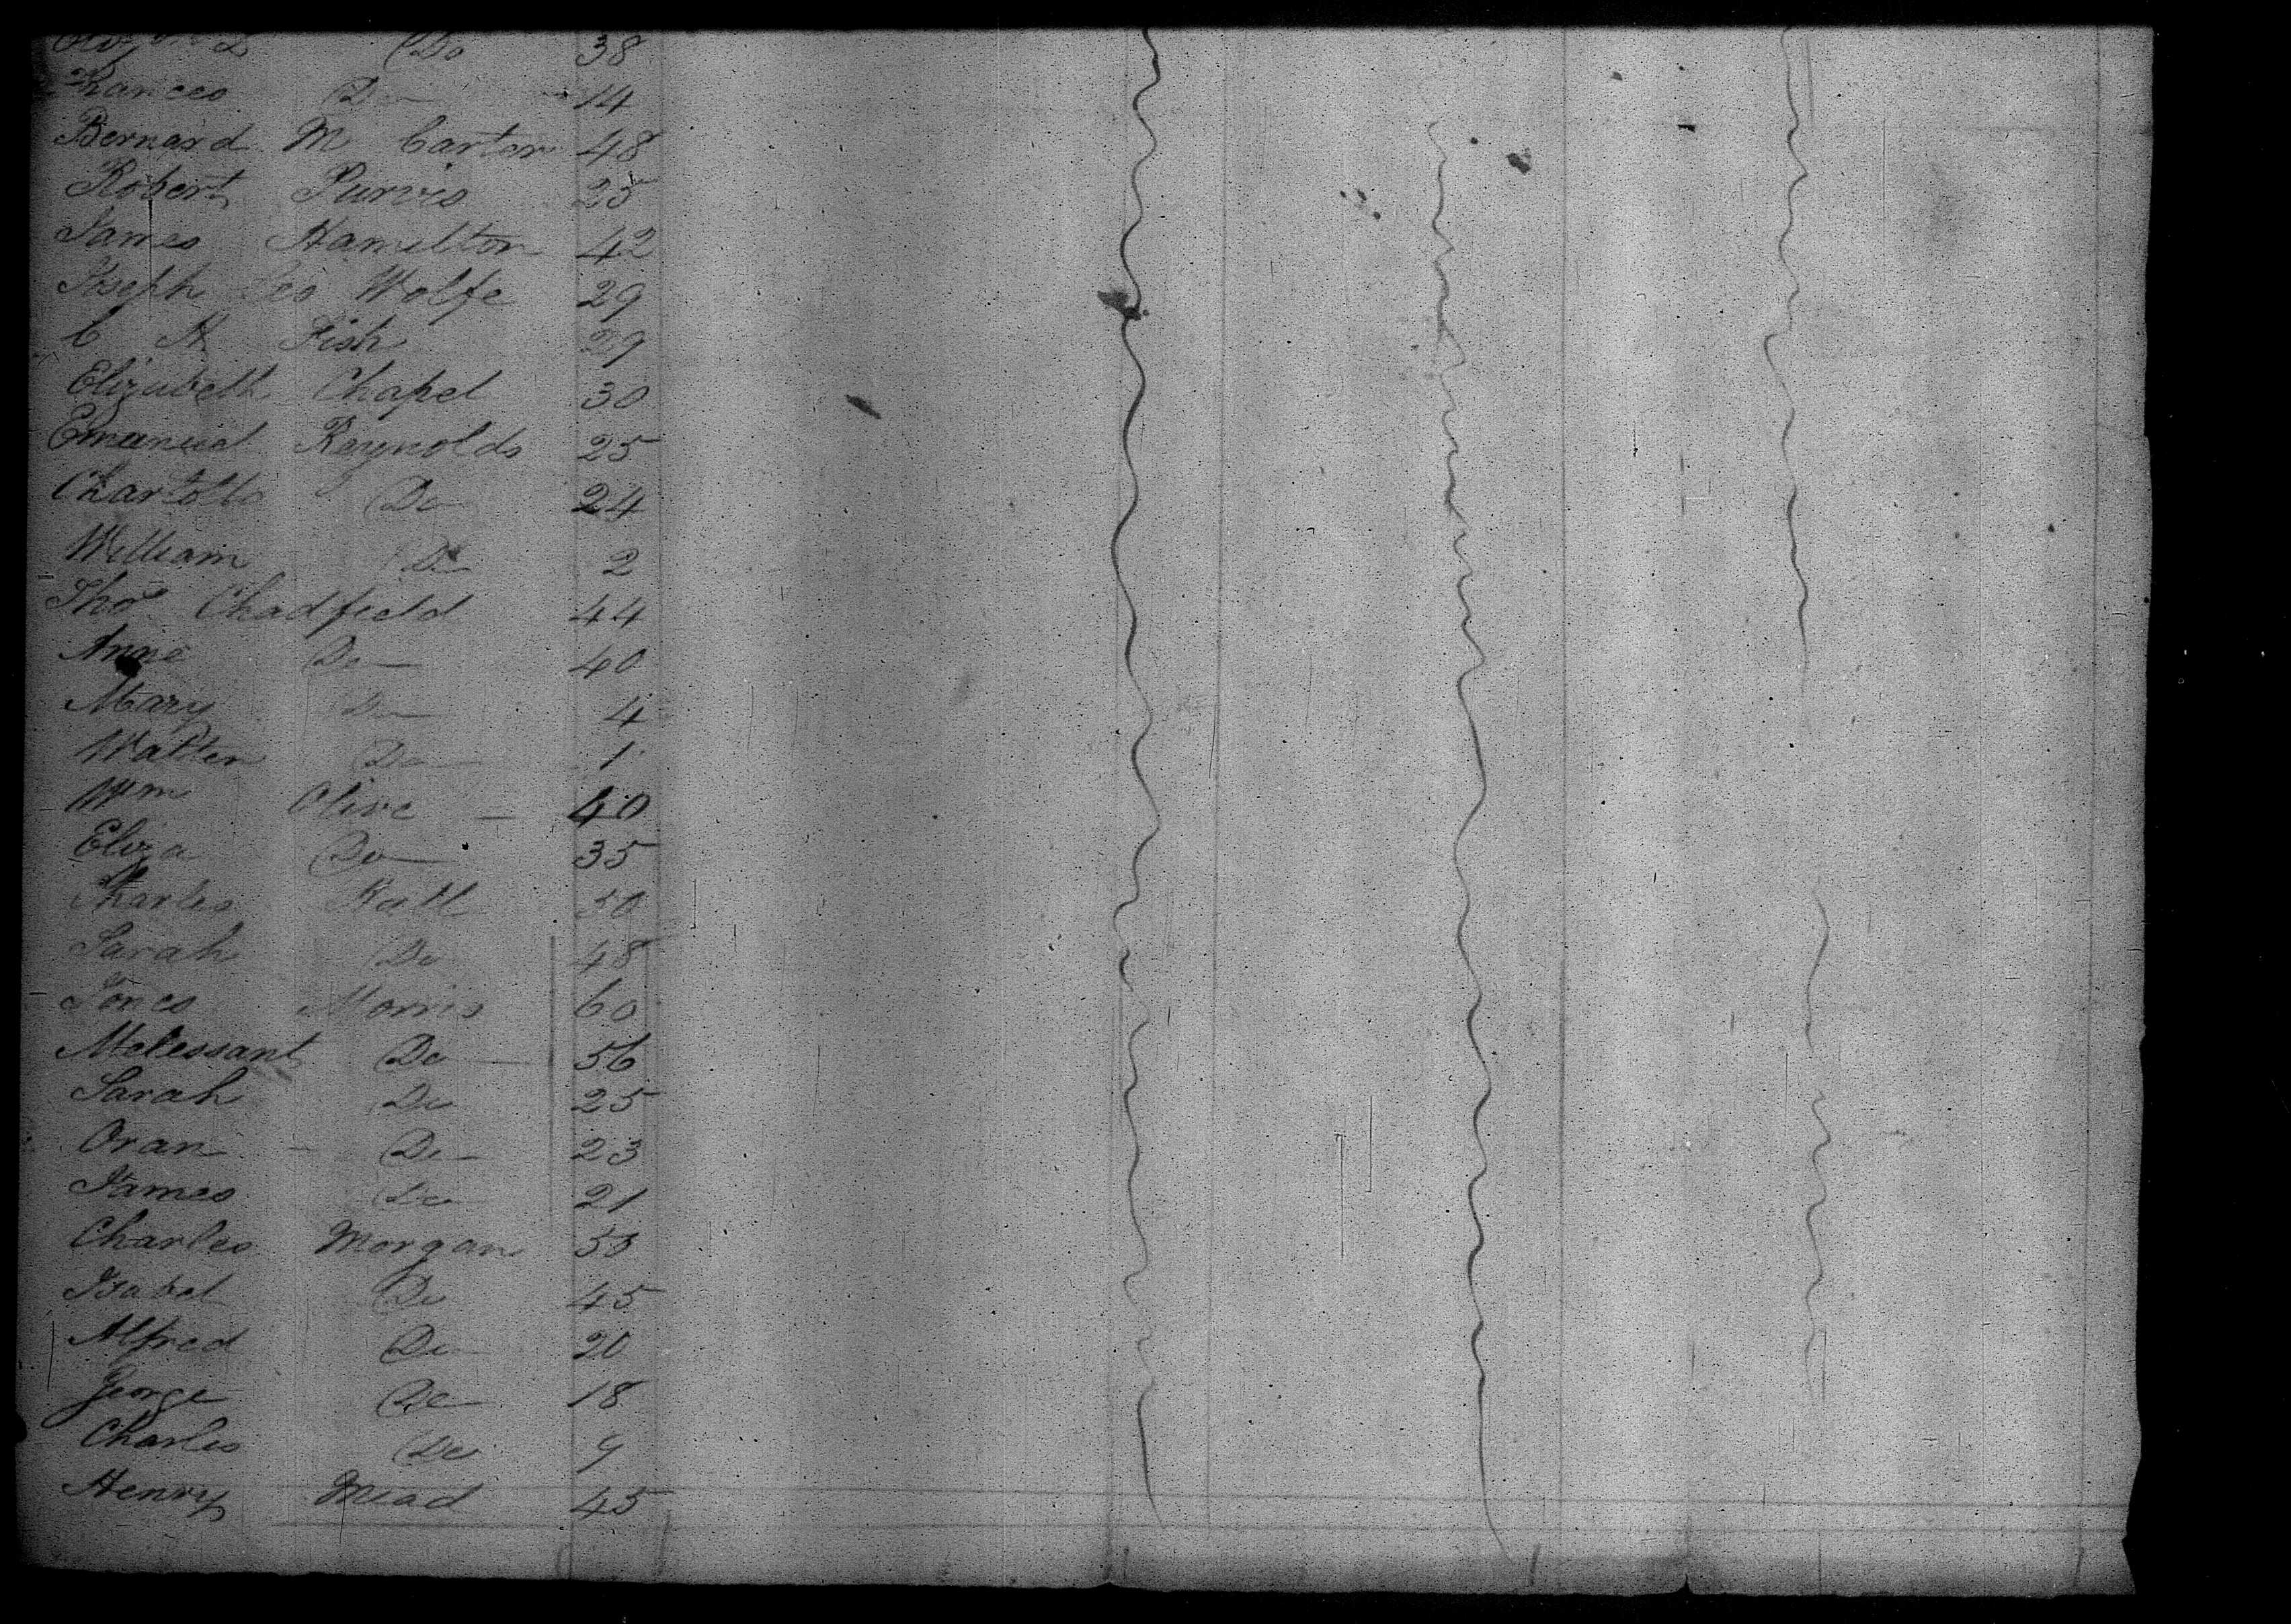 Do 38
Frances Do 14
Bernard M Carter 48
Robert Purvis 25
James Hamilton 42
Joseph Leo Wolfe 29
C H Fish 29
Elizabeth Chapel 30
Emanuel Raynolds 25
Charlotte Do 24
William Do 2
Thos Chadfield 44
Anne Do 40
Mary Do 4
Walter Do 1
Wm Olive 40
Eliza Do 35
Charles Hall 50
Sarah Do 48
Jones Morris 60
Melessant Do 56
Sarah Do 25
Oran Do 23
James Do 21
Charles Morgan 50
Isabel Do 45
Alfred Do 20
George Do 18
Charles Do 9
Henry Mead 45